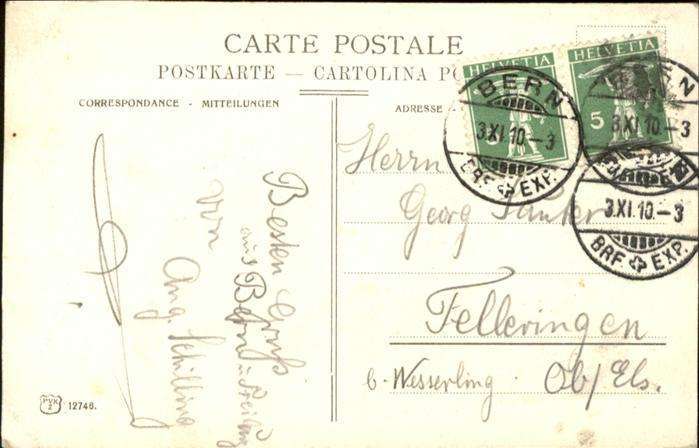 CARTE POSTALE
POSTKARTE — CARTOLINA PO
CORRESPONDANCE - MITTEILUNGEN
ADRESSE -
HELVETIA
HELVETIA
5
BERN
3.XI.10.-3
BRF EXP.
3.XI.10.-3
3.XI.10.-3
BRF EXP.
Herrn
Georg
Felleringen
b. Wesserling Ob/Els.
Besten Gruß
aus Bern
von
Aug. Schilling
PVK
Z
12746.